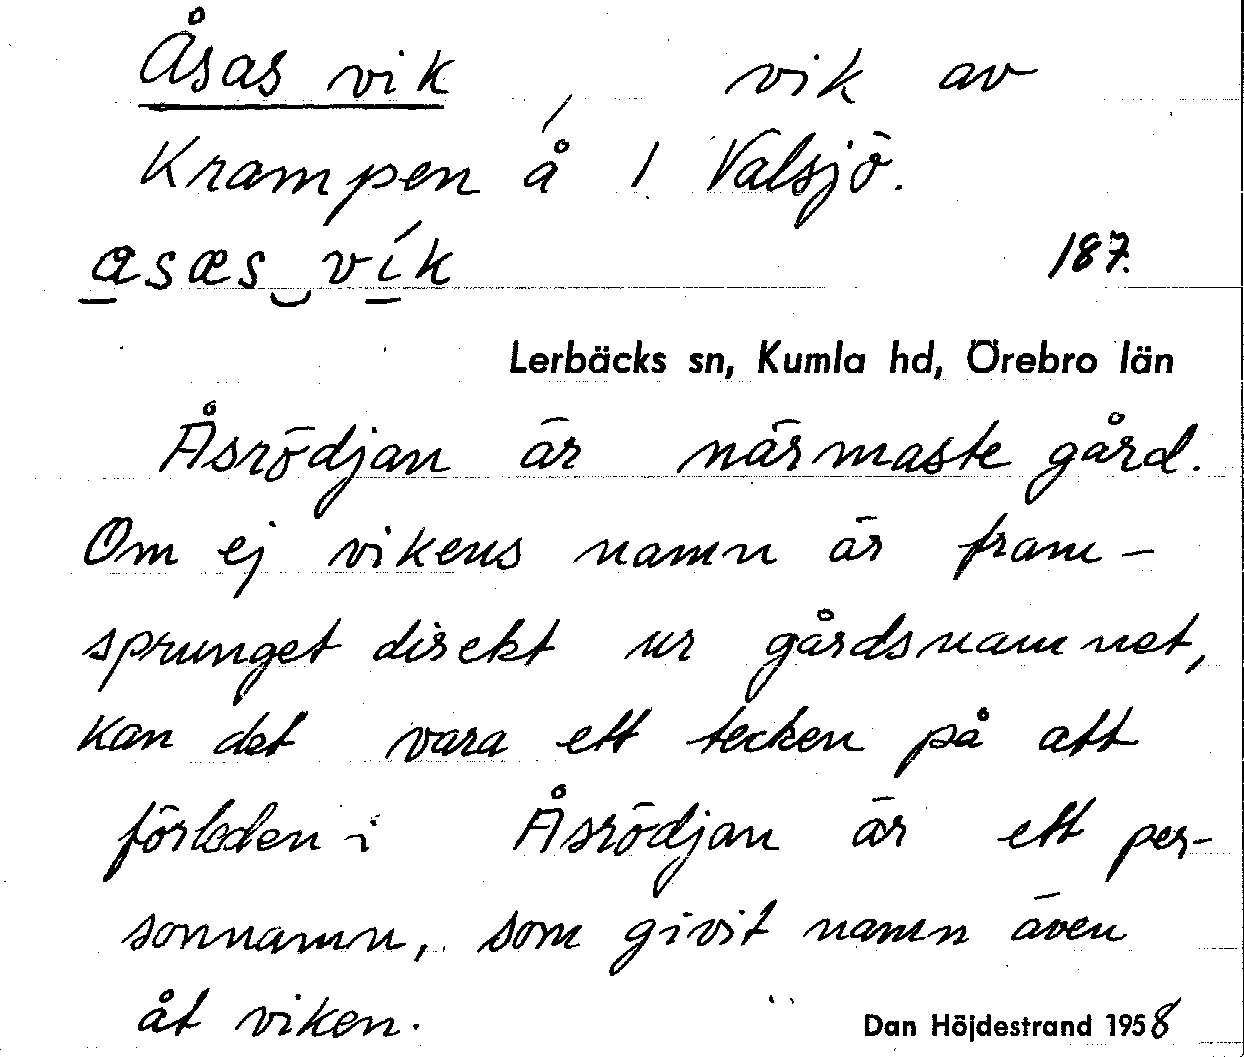 Åsas vik, vik av
Krampen å 1 Valsjö.
asæs vík
187.
Lerbäcks sn, Kumla hd, Örebro län
Åsrödjan är närmaste gård.
Om ej vikens namn är fram-
sprunget direkt ur gårdsnamnet,
kan det vara ett tecken på att
förleden i Åsrödjan är ett per-
sonnamn, som givit namn även
åt viken.
Dan Höjdestrand 1958